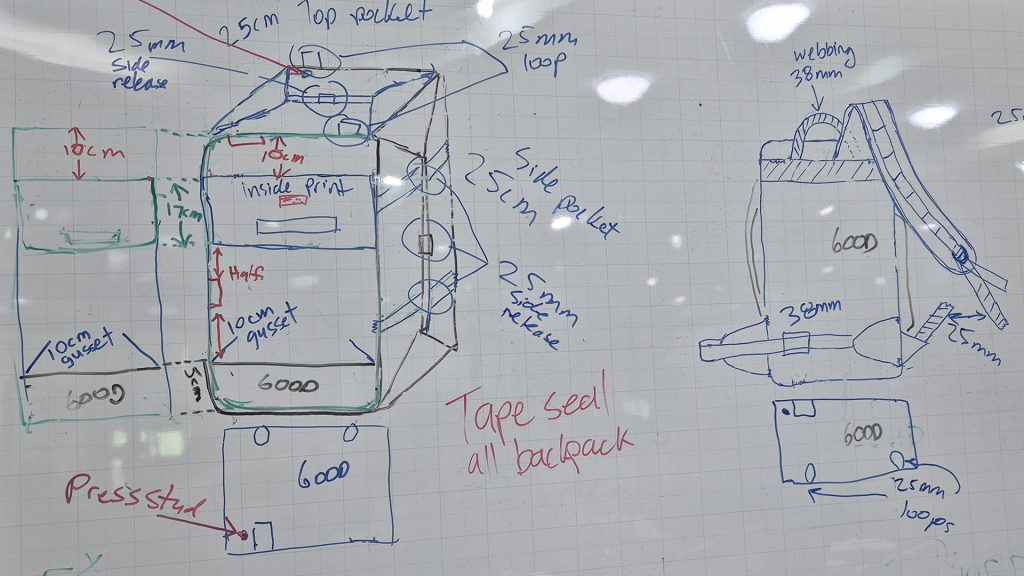 25cm Top pocket
25mm
side
release
25mm
loop
webbing
38mm
10cm
10cm
inside print
17cm
Side pocket
25cm
600D
Half
25mm
side
release
10cm
gusset
10cm
gusset
38mm
25mm
5cm
600D
600D
Tape seal
all backpack
600D
600D
Press stud
25mm
loops